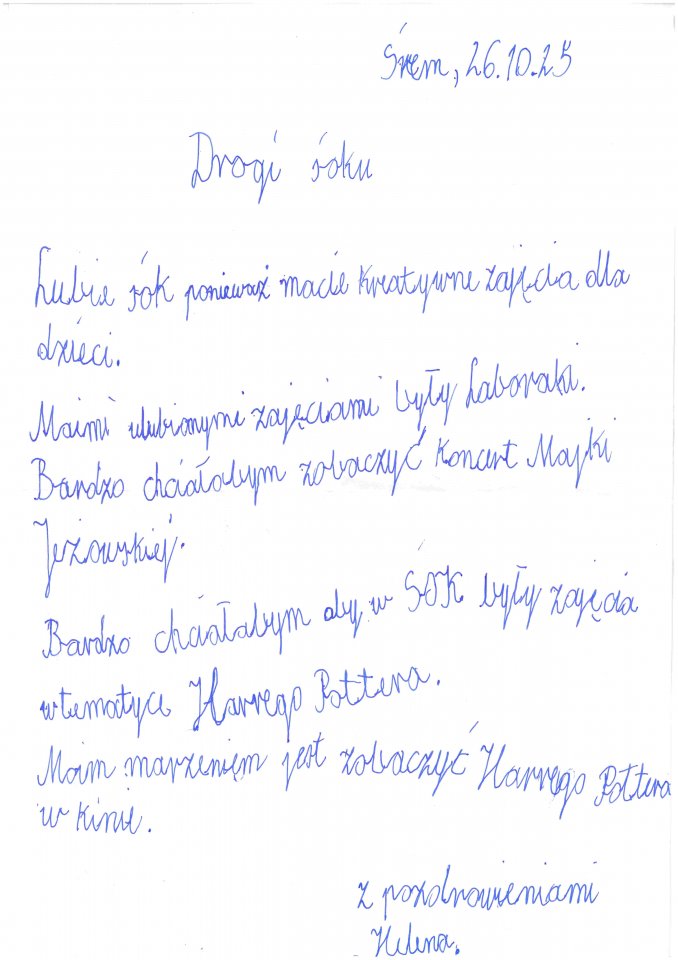 Śrem, 26.10.25
Drogi śoku
Lubie śok ponieważ macie kreatywne zajęcia dla
dzieci.
Maimi ulubionymi zajęciami były Laboraki.
Bardzo chciałabym zobaczyć koncert Majki
Jeżowskiej.
Bardzo chciałabym aby w ŚOK były zajęcia
w tematyce Harrego Pottera.
Moim marzeniem jest zobaczyć Harrego Pottera
w kinie.
z pozdrowieniami
Helena.